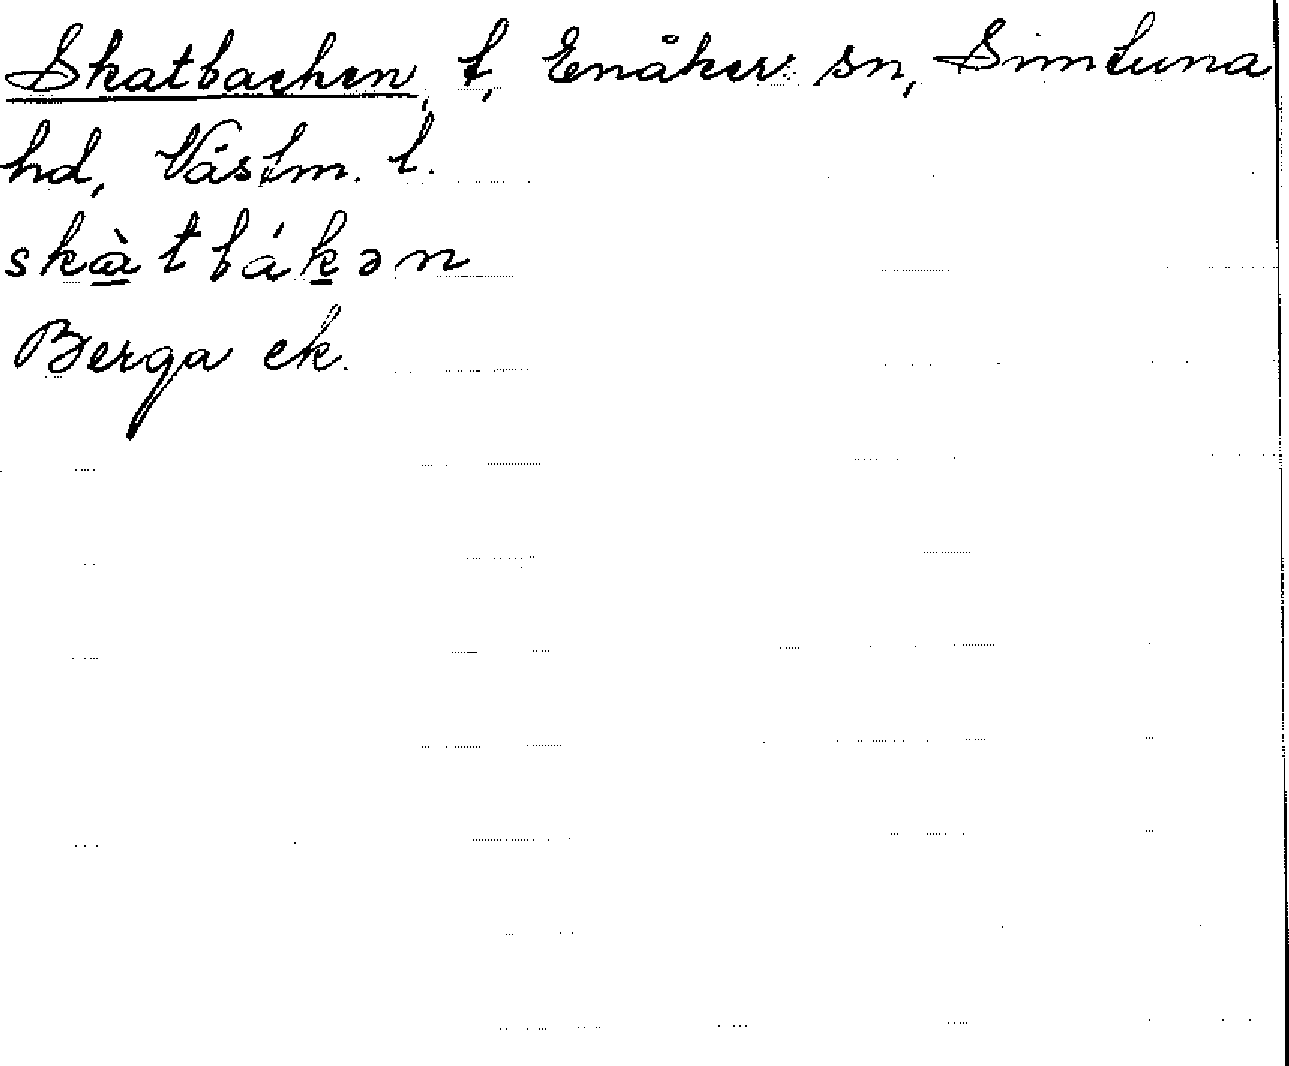 Skatbacken, t, Enåker sn, Simtuna
hd, Västm. l.
skàtbákən
Berga ek.